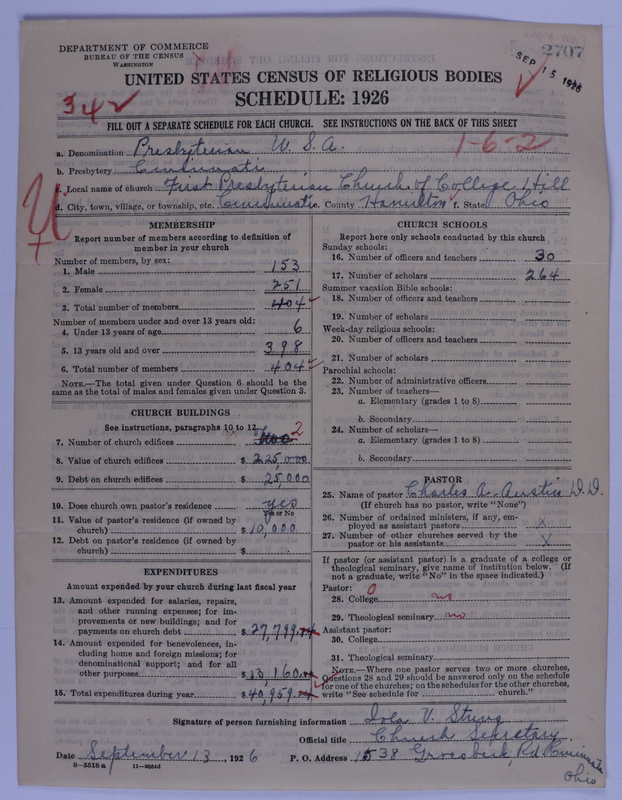 DEPARTMENT OF COMMERCE
BUREAU OF THE CENSUS
WASHINGTON
2707
SEP 15 1926
UNITED STATES CENSUS OF RELIGIOUS BODIES
SCHEDULE: 1926
342
FILL OUT A SEPARATE SCHEDULE FOR EACH CHURCH. SEE INSTRUCTIONS ON THE BACK OF THIS SHEET
1-6-2
a. Denomination Presbyterian U.S.A.
b. Presbytery Cincinnati
c. Local name of church First Presbyterian Church of College Hill
d. City, town, village, or township, etc. Cincinnati e. County Hamilton f. State Ohio
MEMBERSHIP
Report number of members according to definition of
member in your church
Number of members, by sex:
1. Male 153
2. Female 251
3. Total number of members 404
Number of members under and over 13 years old:
4. Under 13 years of age 6
5. 13 years old and over 398
6. Total number of members 404
NOTE.—The total given under Question 6 should be the
same as the total of males and females given under Question 3.
CHURCH BUILDINGS
See instructions, paragraphs 10 to 12
7. Number of church edifices 2
8. Value of church edifices $225,000
9. Debt on church edifices $25,000
10. Does church own pastor's residence yes
Yes or No
11. Value of pastor's residence (if owned by
church) $10,000
12. Debt on pastor's residence (if owned by
church) $
EXPENDITURES
Amount expended by your church during last fiscal year
13. Amount expended for salaries, repairs,
and other running expenses; for im-
provements or new buildings; and for
payments on church debt $27,799
14. Amount expended for benevolences, in-
cluding home and foreign missions; for
denominational support; and for all
other purposes $13,160
15. Total expenditures during year $40,959
CHURCH SCHOOLS
Report here only schools conducted by this church
Sunday schools:
16. Number of officers and teachers 30
17. Number of scholars 264
Summer vacation Bible schools:
18. Number of officers and teachers
19. Number of scholars
Week-day religious schools:
20. Number of officers and teachers
21. Number of scholars
Parochial schools:
22. Number of administrative officers
23. Number of teachers—
a. Elementary (grades 1 to 8)
b. Secondary
24. Number of scholars—
a. Elementary (grades 1 to 8)
b. Secondary
PASTOR
25. Name of pastor Charles A. Austin D.D.
(If church has no pastor, write "None")
26. Number of ordained ministers, if any, em-
ployed as assistant pastors x
27. Number of other churches served by the
pastor or his assistants x
If pastor (or assistant pastor) is a graduate of a college or
theological seminary, give name of institution below. (If
not a graduate, write "No" in the space indicated.)
Pastor: 0
28. College no
29. Theological seminary no
Assistant pastor:
30. College
31. Theological seminary
NOTE.—Where one pastor serves two or more churches,
Questions 28 and 29 should be answered only on the schedule
for one of the churches; on the schedules for the other churches,
write "See schedule for church."
Signature of person furnishing information Iola V. Struve
Official title Church Secretary
Date September 13, 1926 P. O. Address 1538 Groesbeck Rd Cincinnati
Ohio
8—5519 a